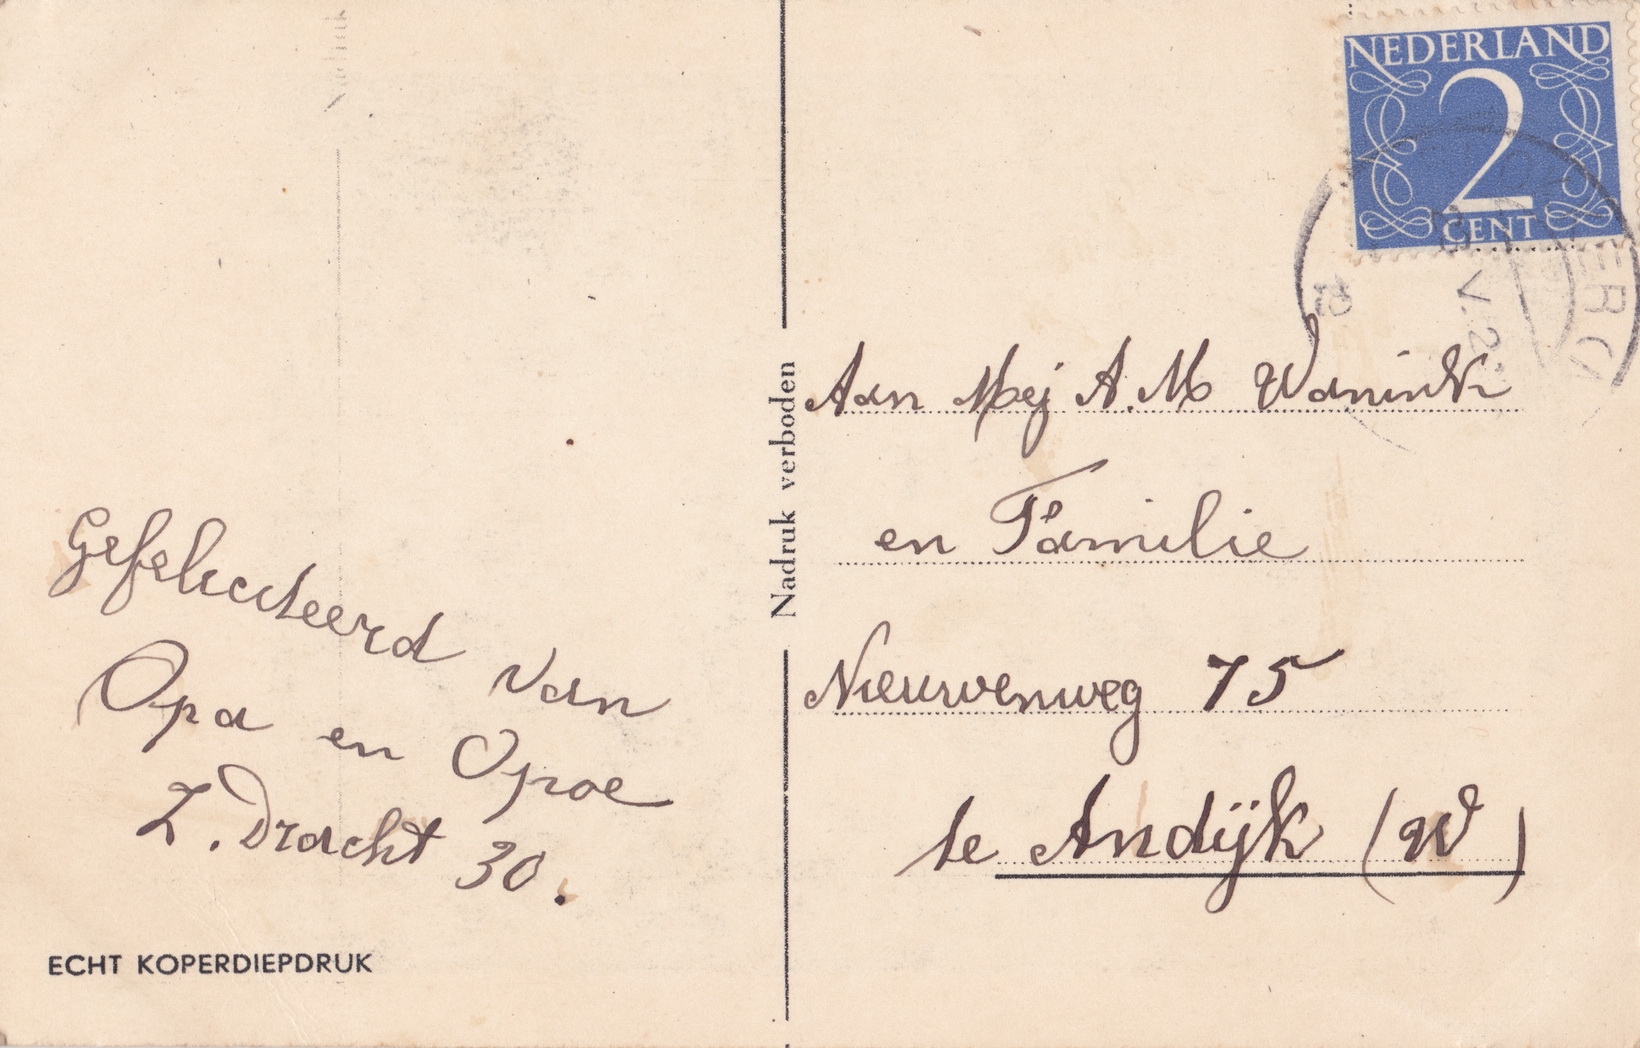 Gefeliciteerd van
Opa en Opoe
Z. Dracht 30.
ECHT KOPERDIEPDRUK
Nadruk verboden
NEDERLAND
2
CENT
Aan Mej A. M Wanink
en Familie
Nieuwenweg 75
te Andijk (W)